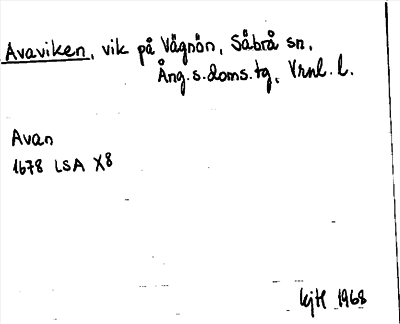 Avaviken, vik på Vägnön, Säbrå sn,
Ång.s.doms.tg, Vrnl. l.
Avan
1678 LSA X8
1968